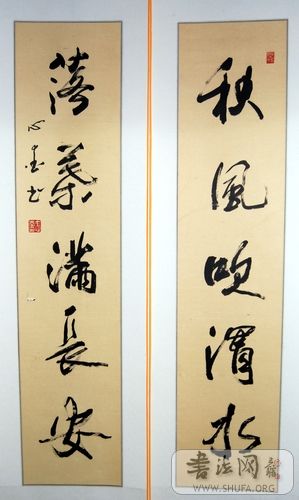 秋風吹渭水
落葉滿長安
心畫书
书法网
WWW.SHUFA.ORG